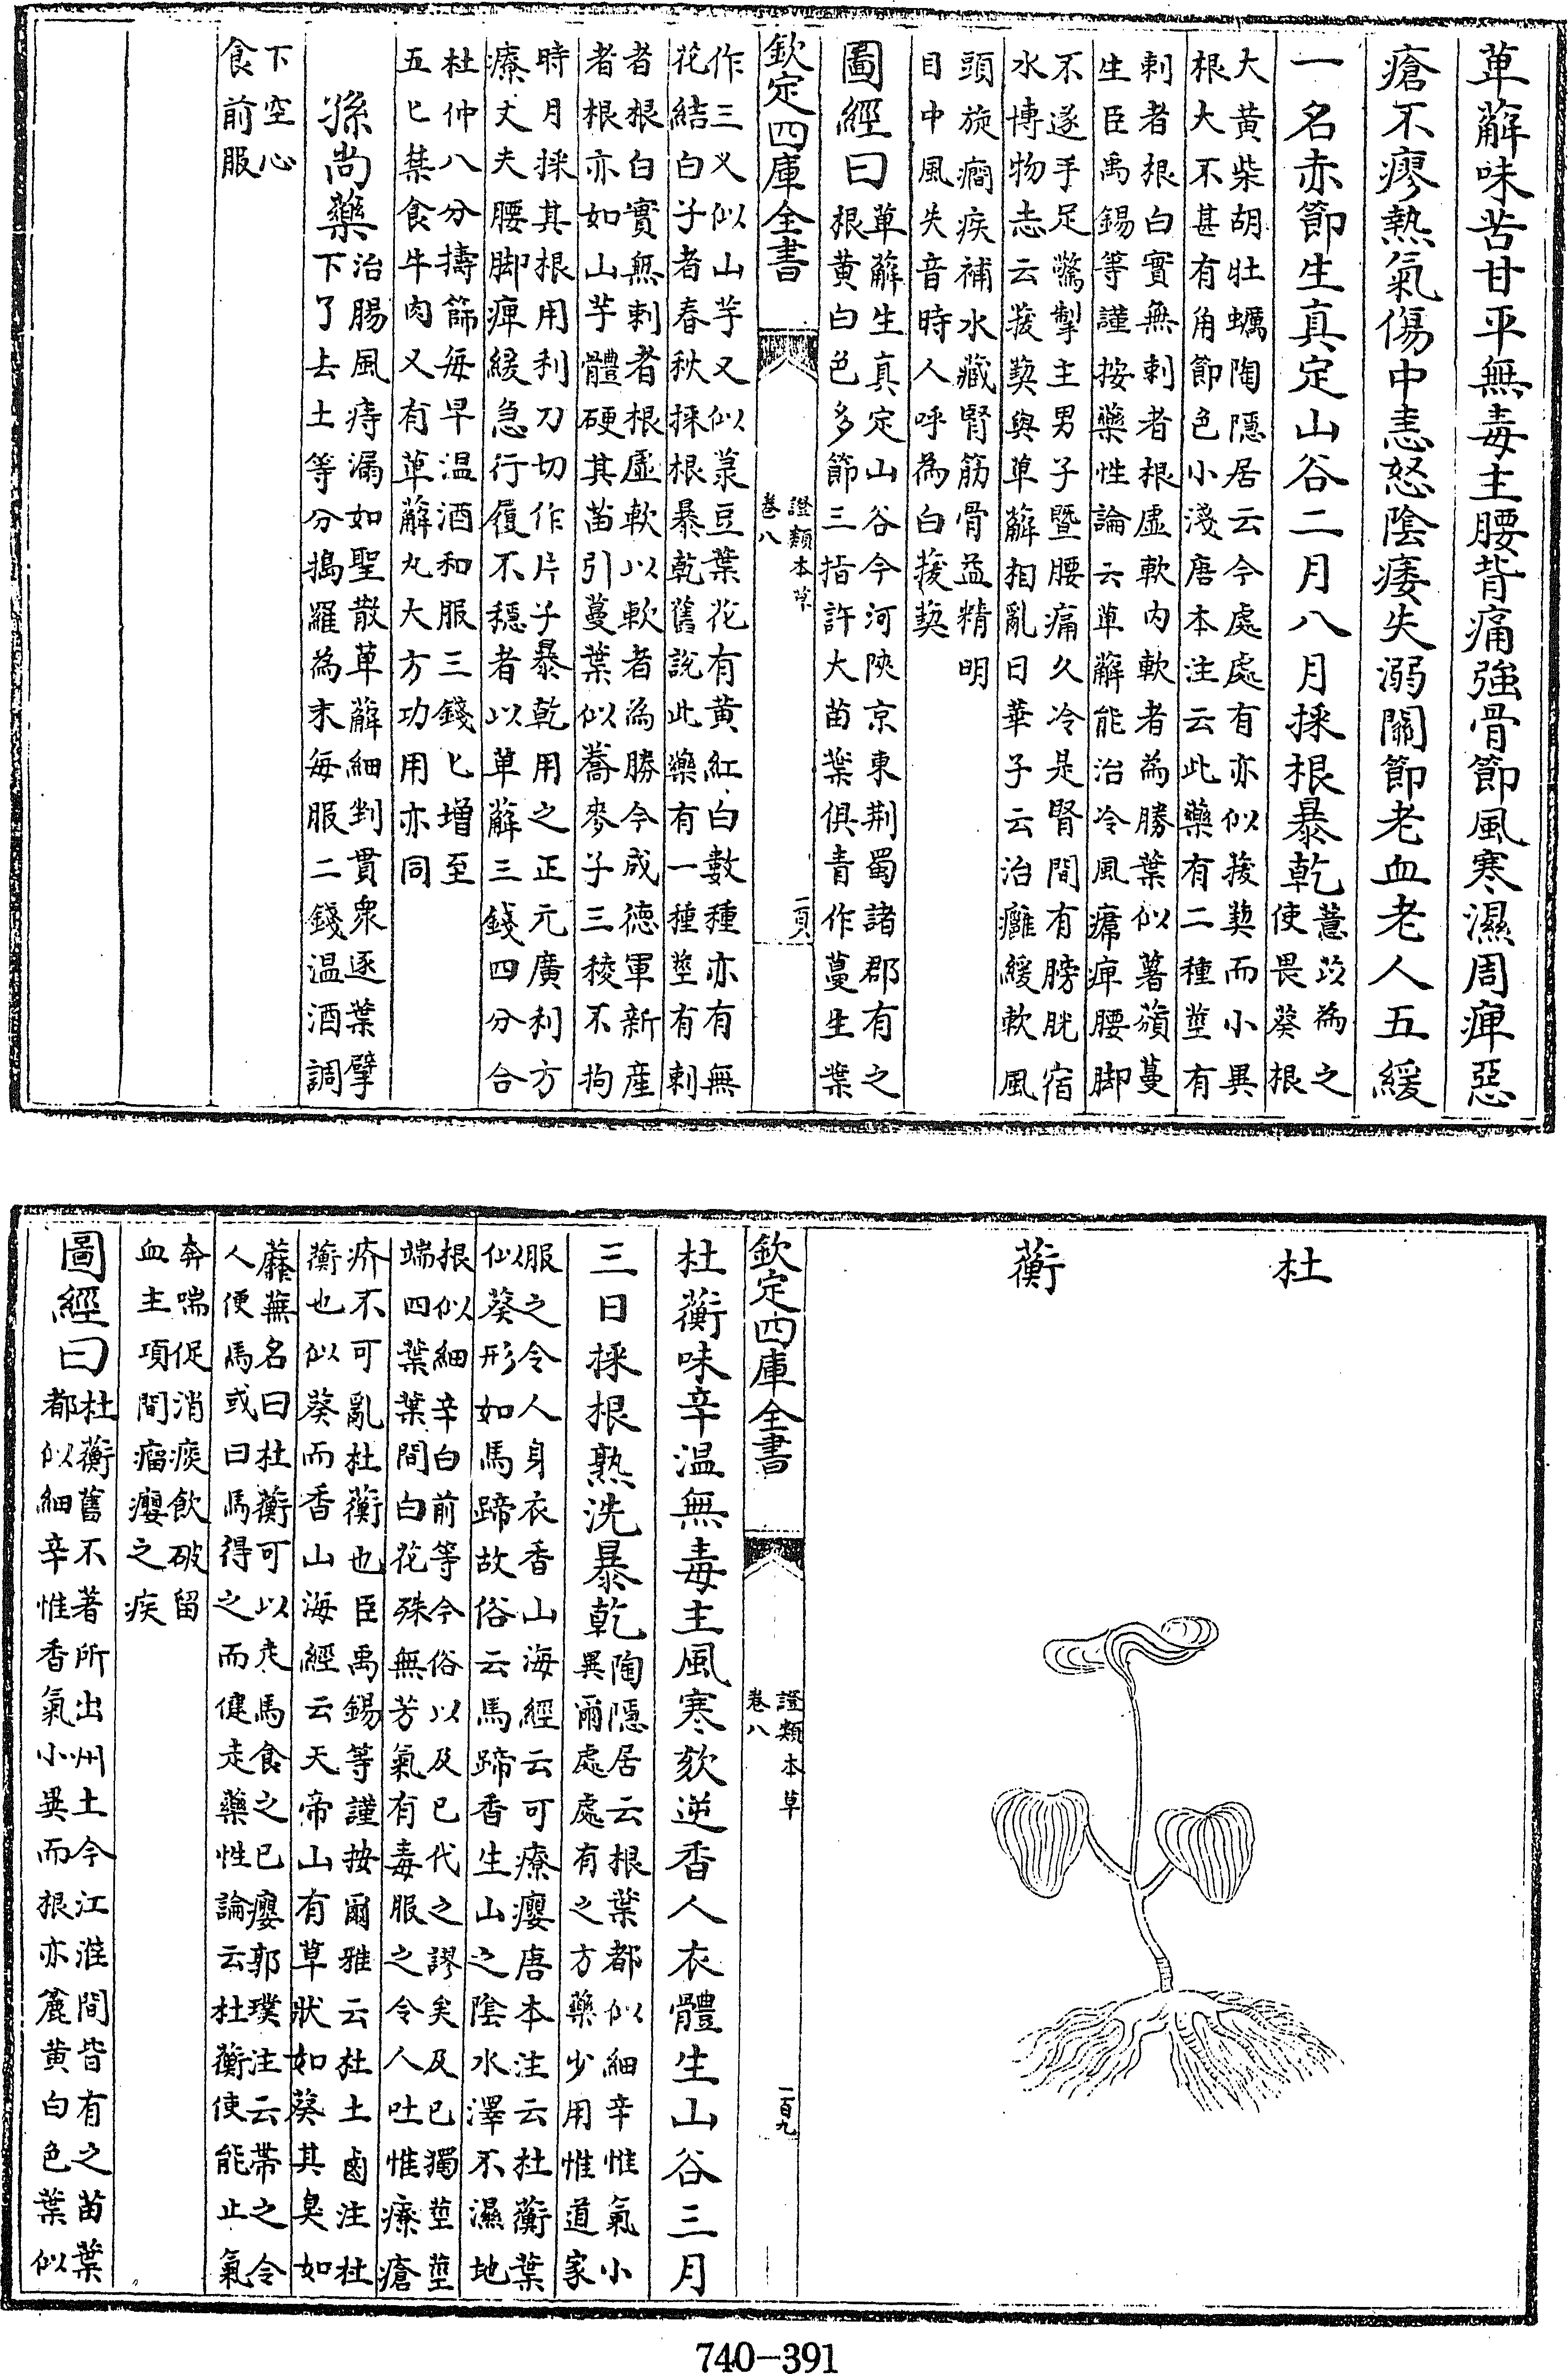 萆薢味苦甘平無毒主腰背痛強骨節風寒濕周痺惡
瘡不瘳熱氣傷中恚怒陰痿失溺關節老血老人五緩
一名赤節生真定山谷二月八月採根暴乾薏苡為之
使畏葵根
大黃柴胡牡蠣陶隱居云今處處有亦似菝葜而小異
根大不甚有角節色小淺唐本注云此藥有二種莖有
刺者根白實無刺者根虛軟內軟者為勝葉似薯蕷蔓
生臣禹錫等謹按藥性論云萆薢能治冷風𤸷痺腰脚
不遂手足驚掣主男子暨腰痛久冷是腎間有膀胱宿
水博物志云菝葜與萆薢相亂日華子云治癱緩軟風
頭旋癇疾補水藏腎筋骨益精明
目中風失音時人呼為白菝葜
圖經曰萆薢生真定山谷今河陜京東荆蜀諸郡有之
根黃白色多節三指許大苗葉俱青作蔓生葉
欽定四庫全書
證類本草
卷八
一頁
作三乂似山芋又似菉豆葉花有黃紅白數種亦有無
花結白子者春秋採根暴乾舊說此藥有一種莖有刺
者根白實無刺者根虛軟以軟者為勝今成德軍新產
者根亦如山芋體硬其苗引蔓葉似蕎麥子三稜不拘
時月採其根用利刀切作片子暴乾用之正元廣利方
療丈夫腰脚痺緩急行履不穩者以萆薢三錢四分合
杜仲八分擣篩每早溫酒和服三錢匕增至
五匕禁食牛肉又有萆薢丸大方功用亦同
孫尚藥治腸風痔漏如聖散萆薢細剉貫衆逐葉擘
下了去土等分搗羅為末每服二錢溫酒調
下空心
食前服
杜
蘅
欽定四庫全書
證類本草
卷八
一百九
杜蘅味辛溫無毒主風寒欬逆香人衣體生山谷三月
三日採根熟洗暴乾陶隱居云根葉都似細辛惟氣小
異爾處處有之方藥少用惟道家
服之令人身衣香山海經云可療癭唐本注云杜蘅葉
似葵形如馬蹄故俗云馬蹄香生山之陰水澤下濕地
根似細辛白前等今俗以及已代之謬矣及已獨莖莖
端四葉葉間白花殊無芳氣有毒服之令人吐惟療瘡
疥不可亂杜蘅也臣禹錫等謹按爾雅云杜土鹵注杜
蘅也似葵而香山海經云天帝山有草狀如葵其臭如
蘼蕪名曰杜蘅可以走馬食之已癭郭璞注云帶之令
人便馬或曰馬得之而健走藥性論云杜蘅使能止氣
奔喘促消痰飲破留
血主項間瘤癭之疾
圖經曰杜蘅舊不著所出州土今江淮間皆有之苗葉
都似細辛惟香氣小異而根亦麄黃白色葉似
740-391